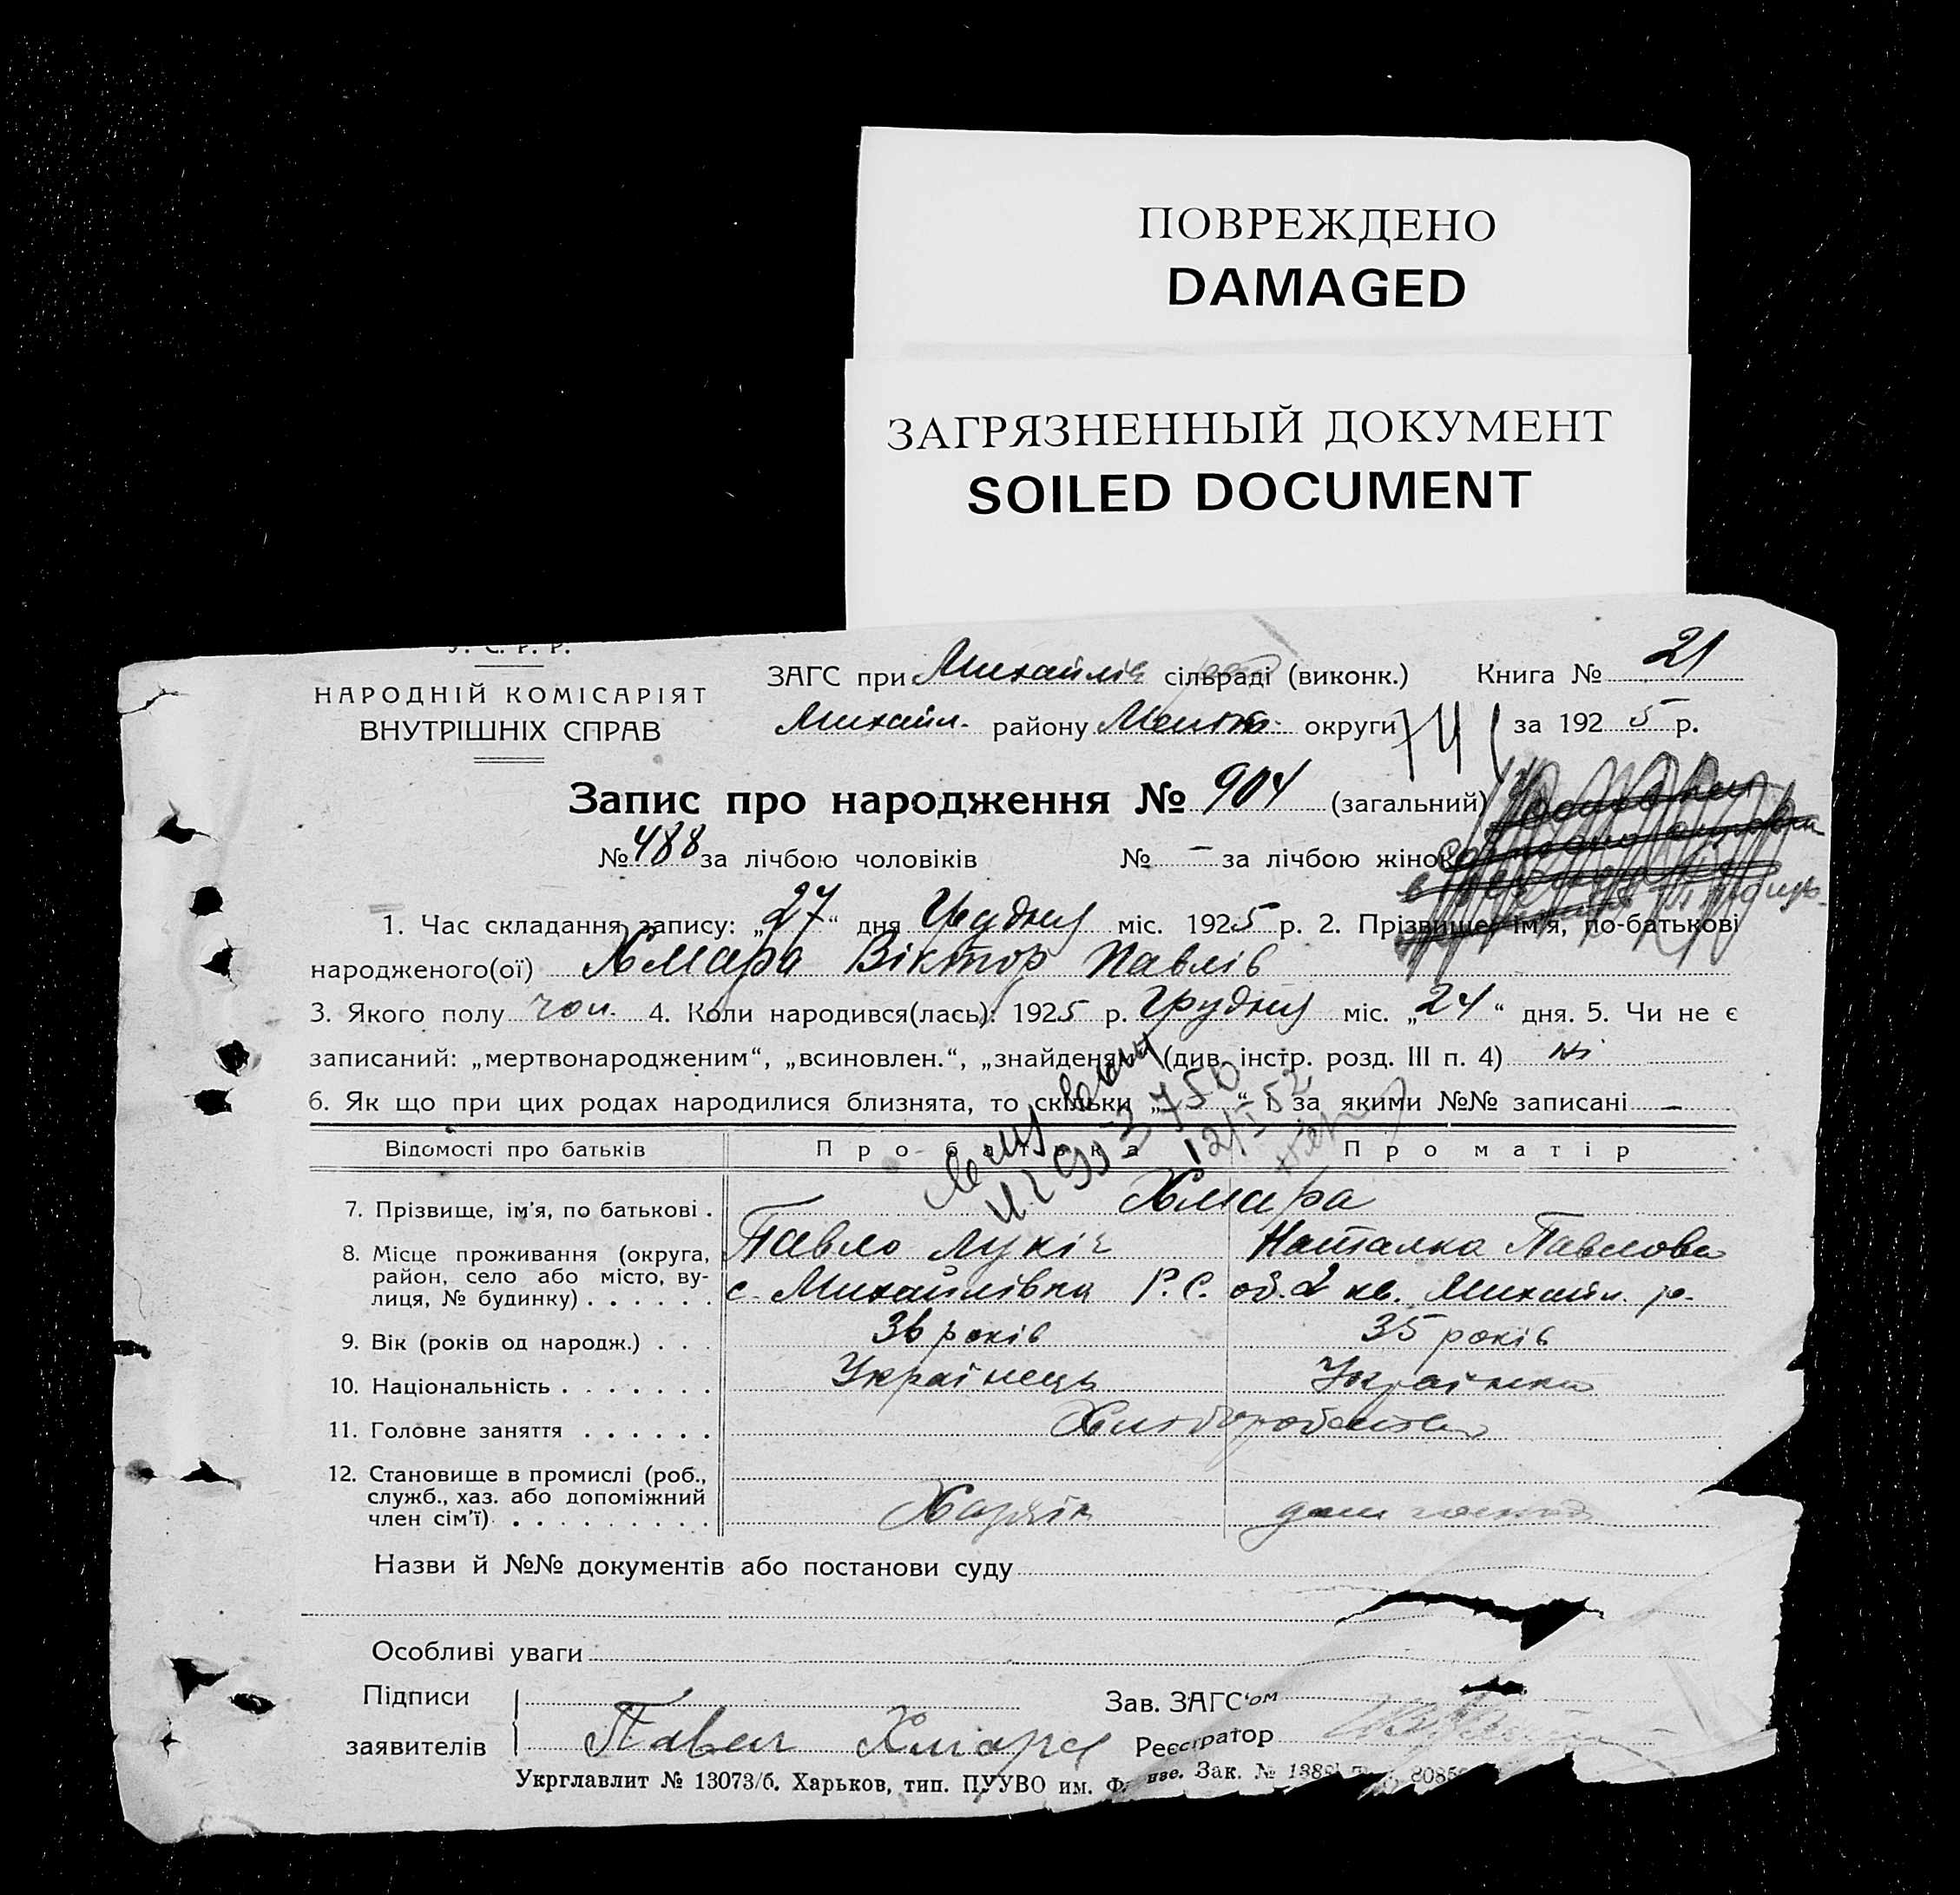 ПОВРЕЖДЕНО
DAMAGED
ЗАГРЯЗНЕННЫЙ ДОКУМЕНТ
SOILED DOCUMENT
У. С. Р. Р.
НАРОДНІЙ КОМІСАРІЯТ
ВНУТРІШНІХ СПРАВ
ЗАГС при Михайлів сільраді (виконк.) Книга № 21
Михайл. району Меліт. округи 74 за 1925 р.
Запис про народження № 904 (загальний)
№ 488 за лічбою чоловіків № — за лічбою жінок
1. Час складання запису: „27“ дня Грудня міс. 1925 р. 2. Прізвище, ім'я, по-батькові
народженого(ої) Хмара Віктор Павлів
3. Якого полу чол. 4. Коли народився(лась): 1925 р. Грудня міс. „24“ дня. 5. Чи не є
записаний: „мертвонародженим“, „всиновлен.“, „знайденям“ (див. інстр. розд. III п. 4) ні
6. Як що при цих родах народилися близнята, то скільки „ “ і за якими №№ записані —
12/I 52
Відомості про батьків Про батька Про матір
7. Прізвище, ім'я, по батькові . Хмара
Павло Лукіч Наталка Павлова
8. Місце проживання (округа,
район, село або місто, ву-
лиця, № будинку) . . . . . . с. Михайлівка Р.С. об. 2 кв. Михайл. р.
9. Вік (років од народж.) . . . 36 років 35 років
10. Національність . . . . . . . Українець Українка
11. Головне заняття . . . . . . Хліборобство
12. Становище в промислі (роб.,
служб., хаз. або допоміжний
член сім'ї) . . . . . . . . . Хазяїн дом господ
Назви й №№ документів або постанови суду
Особливі уваги
Підписи Зав. ЗАГС'ом
заявителів Павел Хмара Реєстратор
Укрглавлит № 13073/б. Харьков, тип. ПУУВО им. Зак. №